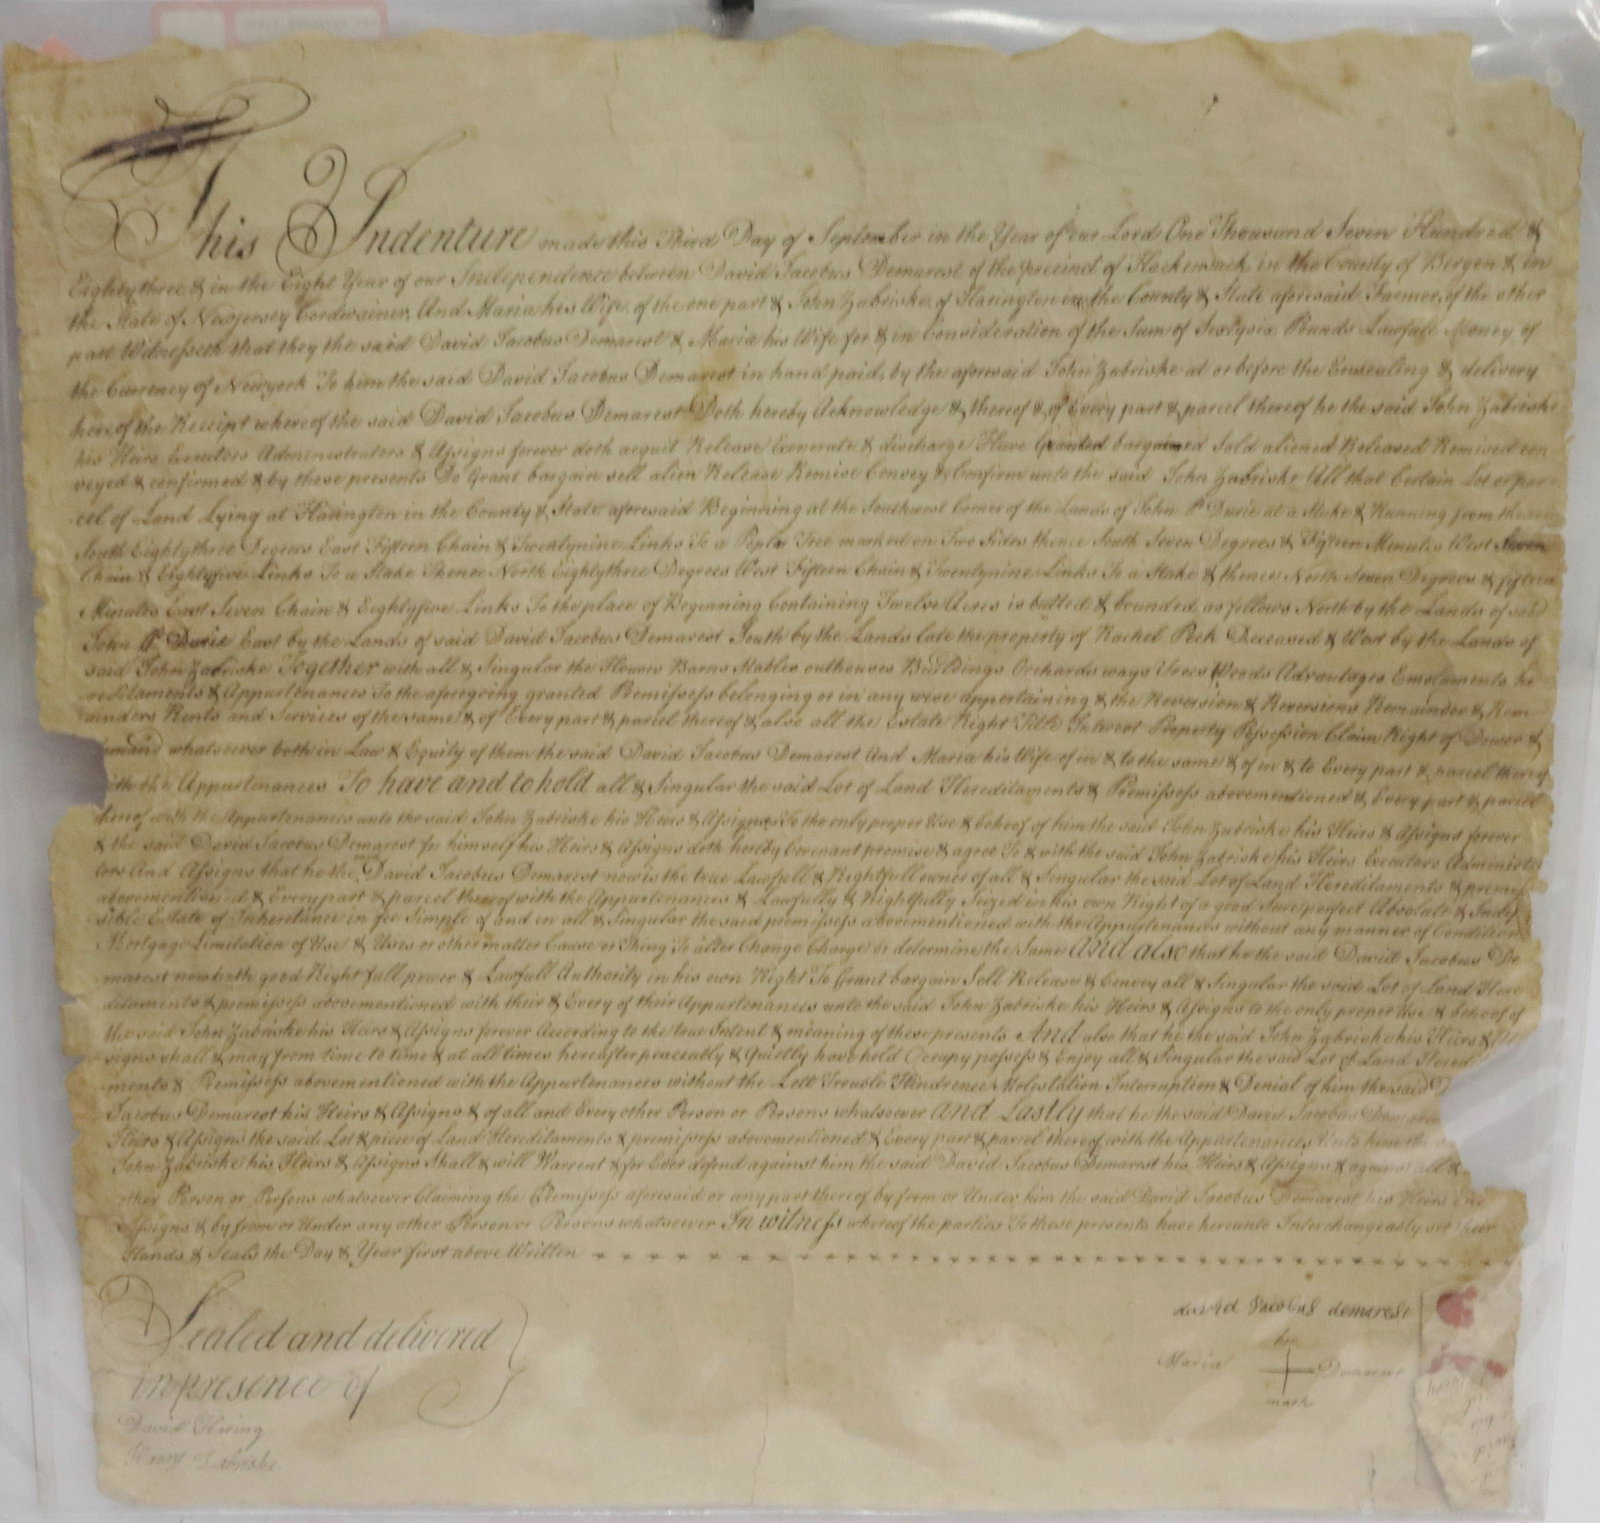 This Indenture made this Third Day of September in the Year of our Lord One Thousand Seven Hundred &
Eightythree & in the Eight Year of our Independence between David Jacobus Demarest of the precinct of Hackensack in the County of Bergen & in
the State of Newjersey Cordwainer, And Maria his Wife, of the one part & John Zabriske, of Harington in the County & State aforesaid Farmer, of the other
part Witnesseth that they the said David Jacobus Demarest & Maria his Wife for & in Consideration of the Sum of Sixtysix Pounds Lawfull Money of
the Currency of Newyork To him the said David Jacobus Demarest in hand paid, by the aforesaid John Zabriske at or before the Ensealing & delivery
hereof the Receipt whereof the said David Jacobus Demarest Doth hereby Acknowledge & thereof & of Every part & parcel thereof he the said John Zabriske
his Heirs Executors Administrators & Assigns forever doth acquit Release Exonerate & discharge Have Granted bargained Sold aliened Released Remised con
veyed & confirmed & by these presents Do Grant bargain sell alien Release Remise Convey & Confirm unto the said John Zabriske All that Certain Lot or par
cel of Land Lying at Harington in the County & State aforesaid Beginning at the Southwest Corner of the Lands of John P Durie at a Stake & Running from thence
South Eightythree Degrees East Fifteen Chain & Twentynine Links To a Poplar Tree marked on Two Sides thence South Seven Degrees & Fifteen Minutes West Seven
Chain & Eightyfive Links To a Stake Thence North Eightythree Degrees West Fifteen Chain & Twentynine Links To a Stake & thence North Seven Degrees & fifteen
Minutes East Seven Chain & Eightyfive Links To the place of Beginning Containing Twelve Acres is butted & bounded as follows North by the Lands of said
John P Durie East by the Lands of said David Jacobus Demarest South by the Lands late the property of Rachel Peck Deceased & West by the Lands of
said John Zabriske Together with all & Singular the Houses Barns Stables outhouses Buildings Orchards ways Trees Woods Advantages Emoluments he
reditaments & Appurtenances To the aforegoing granted Premissess belonging or in any wise appertaining & the Reversion & Reversions Remainder & Rem
ainders Rents and Services of the same & of Every part & parcel thereof & also all the Estate Right Title Interest Property Possession Claim Right of Dower &
demand whatsoever both in Law & Equity of them the said David Jacobus Demarest And Maria his Wife of in & to the same & of in & to Every part & parcel thereof
with the Appurtenances To have and to hold all & Singular the said Lot of Land Hereditaments & Premissess abovementioned & Every part & parcel
thereof with the Appurtenances unto the said John Zabriske his Heirs & Assigns To the only proper Use & behoof of him the said John Zabriske his Heirs & Assigns forever
& the said David Jacobus Demarest for himself his Heirs & Assigns doth hereby Covenant promise & agree To & with the said John Zabriske his Heirs Executors Administra
tors And Assigns that he the said David Jacobus Demarest now is the true Lawfull & Rightfull owner of all & Singular the said Lot of Land Hereditaments & premiss
abovementioned & Every part & parcel thereof with the Appurtenances & Lawfully & Rightfully Seized in his own Right of a good Sure perfect Absolute & Indef
sible Estate of Inheritance in fee Simple of and in all & Singular the said premissess abovementioned with the Appurtenances without any manner of Condition
Mortgage Limitation of Use & Uses or other matter Cause or Thing To alter Change Charge or determine the Same And also that he the said David Jacobus De
marest now hath good Right full power & Lawfull Authority in his own Right To Grant bargain Sell Release & Convey all & Singular the said Lot of Land Here
ditaments & premissess abovementioned with their & Every of their Appurtenances unto the said John Zabriske his Heirs & Assigns to the only proper use & behoof of
the said John Zabriske his Heirs & Assigns forever According to the true Intent & meaning of these presents And also that he the said John Zabriske his Heirs &
signs shall & may from time to time & at all times hereafter peaceably & Quietly have hold Occupy possess & Enjoy all & Singular the said Lot of Land Heredi
ments & Premissess abovementioned with the Appurtenances without the Lett Trouble Hindrence Molestation Interruption & Denial of him the said D
Jacobus Demarest his Heirs & Assigns & of all and Every other Person or Persons whatsoever And Lastly that he the said David Jacobus Demarest
Heirs & Assigns the said Lot & piece of Land Hereditaments & premissess abovementioned & Every part & parcel thereof with the Appurtenances Unto him the
John Zabriske his Heirs & Assigns Shall & will Warrent & for Ever defend against him the said David Jacobus Demarest his Heirs & Assigns & against all &
other Person or Persons whatsoever Claiming the Premissess aforesaid or any part thereof by from or Under him the said David Jacobus Demarest his Heirs
Assigns & by from or Under any other Person or Persons whatsoever In witness whereof the parties To these presents have hereunto Interchangeably set their
Hands & Seals the Day & Year first above Written
david Jacobus demarest
her
Maria Demarest
mark
Sealed and delivered
in presence of
David Haring
Harry Zabriske